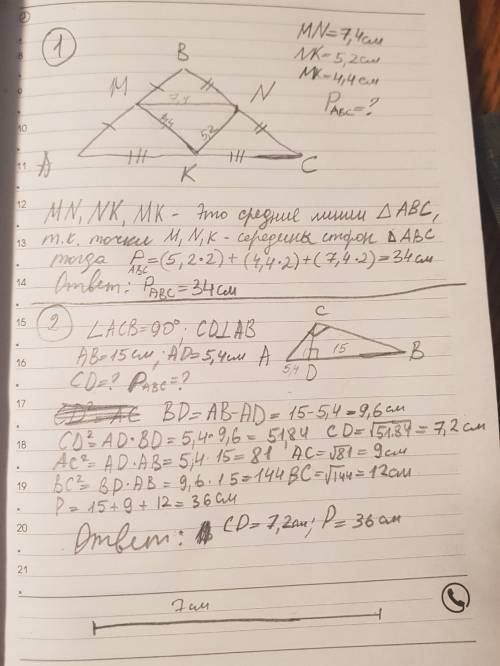 1
MN=7,4см
NK=5,2см
MK=4,4см
P ABC=?
B
M
N
7,4
4,4
5,2
A
K
C
MN, NK, MK - Это средние линии △ABC,
т.к. точки M, N, K - середины сторон △ABC
тогда P ABC=(5,2·2)+(4,4·2)+(7,4·2)=34см
Ответ: P ABC=34см
2
∠ACB=90°; CD⊥AB
AB=15см; AD=5,4см
CD=? P ABC=?
C
A
15
B
5,4
D
BD=AB-AD=15-5,4=9,6см
CD²=AD·BD=5,4·9,6=51,84 CD=√51,84=7,2см
AC²=AD·AB=5,4·15=81 AC=√81=9см
BC²=BD·AB=9,6·15=144 BC=√144=12см
P=15+9+12=36см
Ответ: CD=7,2см; P=36см
7см
11
12
13
14
15
16
17
18
19
20
21